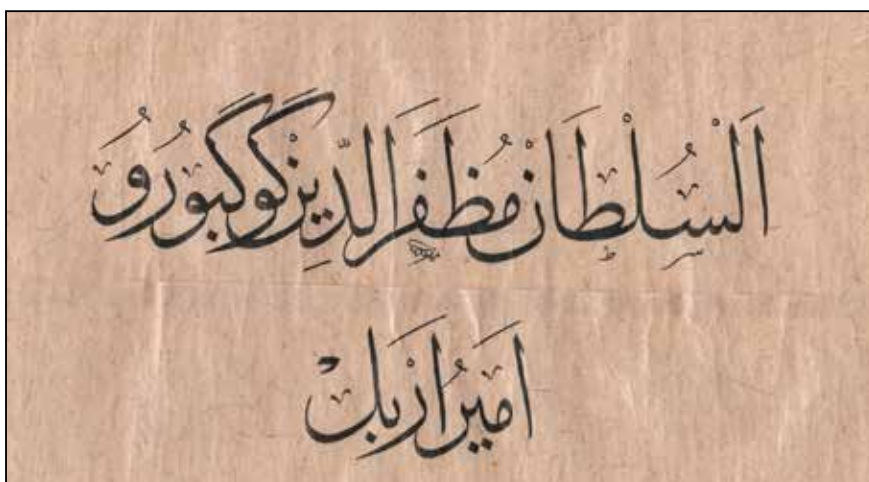 اَلْسُلْطَانْ مُظَفَرَالدِّيِنْ كَوُكْبُورُو
اَمَيرُ اَرْبَلْ